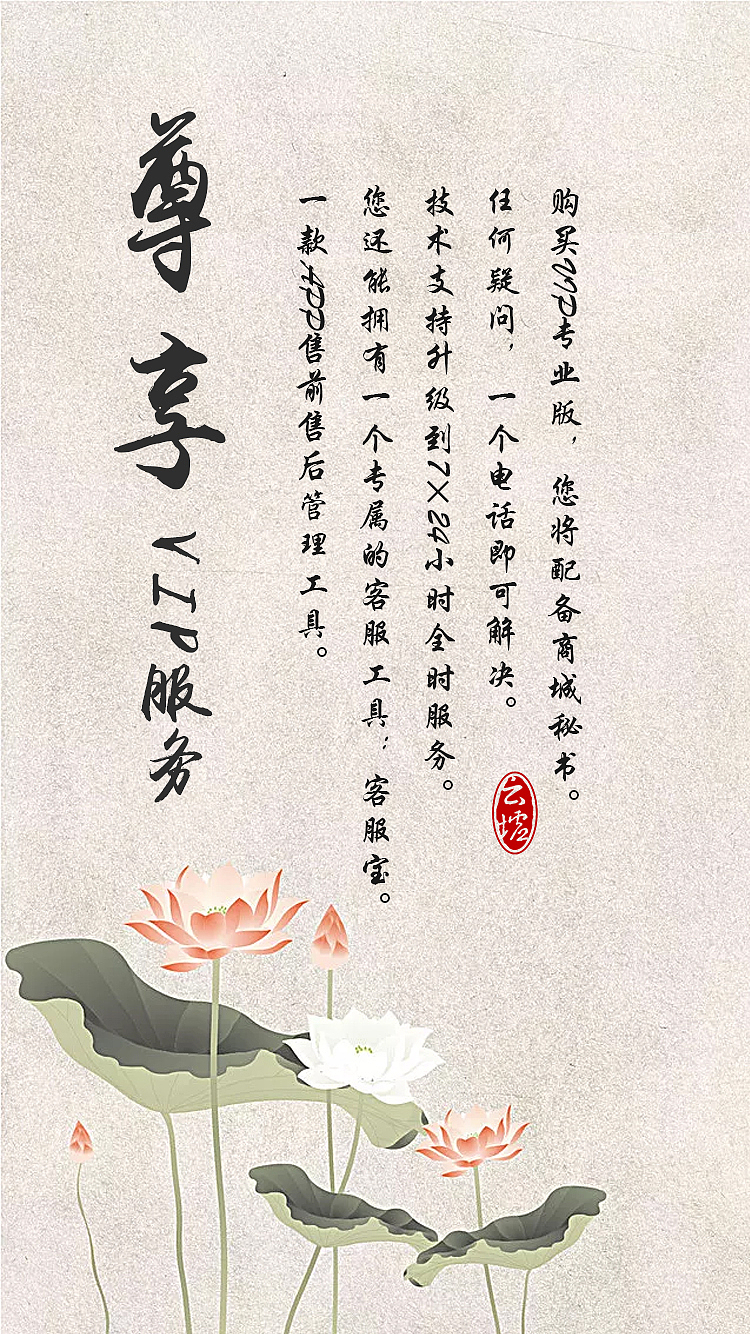 购买VIP专业版，您将配备商城秘书。
任何疑问，一个电话即可解决。
技术支持升级到7×24小时全时服务。
您还能拥有一个专属的客服工具：客服宝。
一款APP售前售后管理工具。
尊享VIP服务
云墟